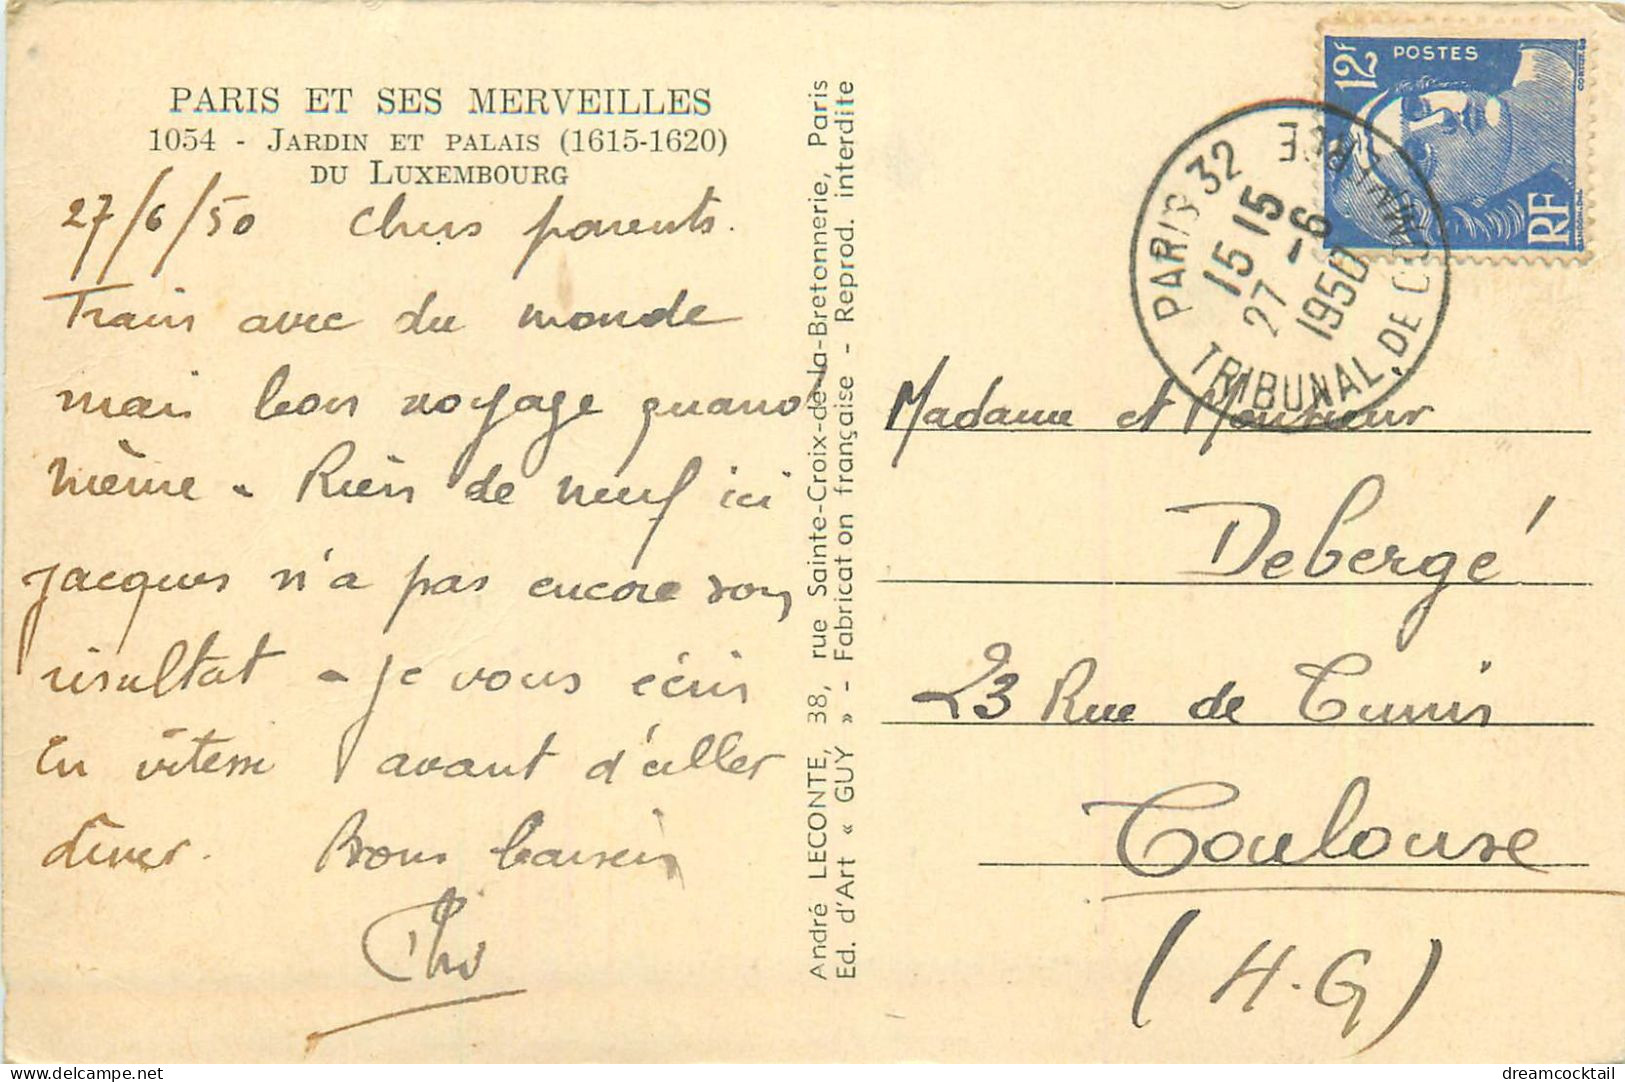 PARIS ET SES MERVEILLES
1054 - JARDIN ET PALAIS (1615-1620)
DU LUXEMBOURG
27/6/50 Chers parents.
Train avec du monde
mais bon voyage quand
même - Rien de neuf ici
Jacques n'a pas encore son
résultat - Je vous écris
en vitesse avant d'aller
dîner. Bons baisers
André LECONTE, 38, rue Sainte-Croix-de-la-Bretonnerie, Paris
Ed. d'Art « GUY » - Fabricat on française - Reprod. interdite
12F
POSTES
RF
PARIS 32
TRIBUNAL DE COMMERCE
15 15
27 -6
1950
Madame et Monsieur
Debergé
23 Rue de Tunis
Toulouse
(H.G)
dreamcocktail